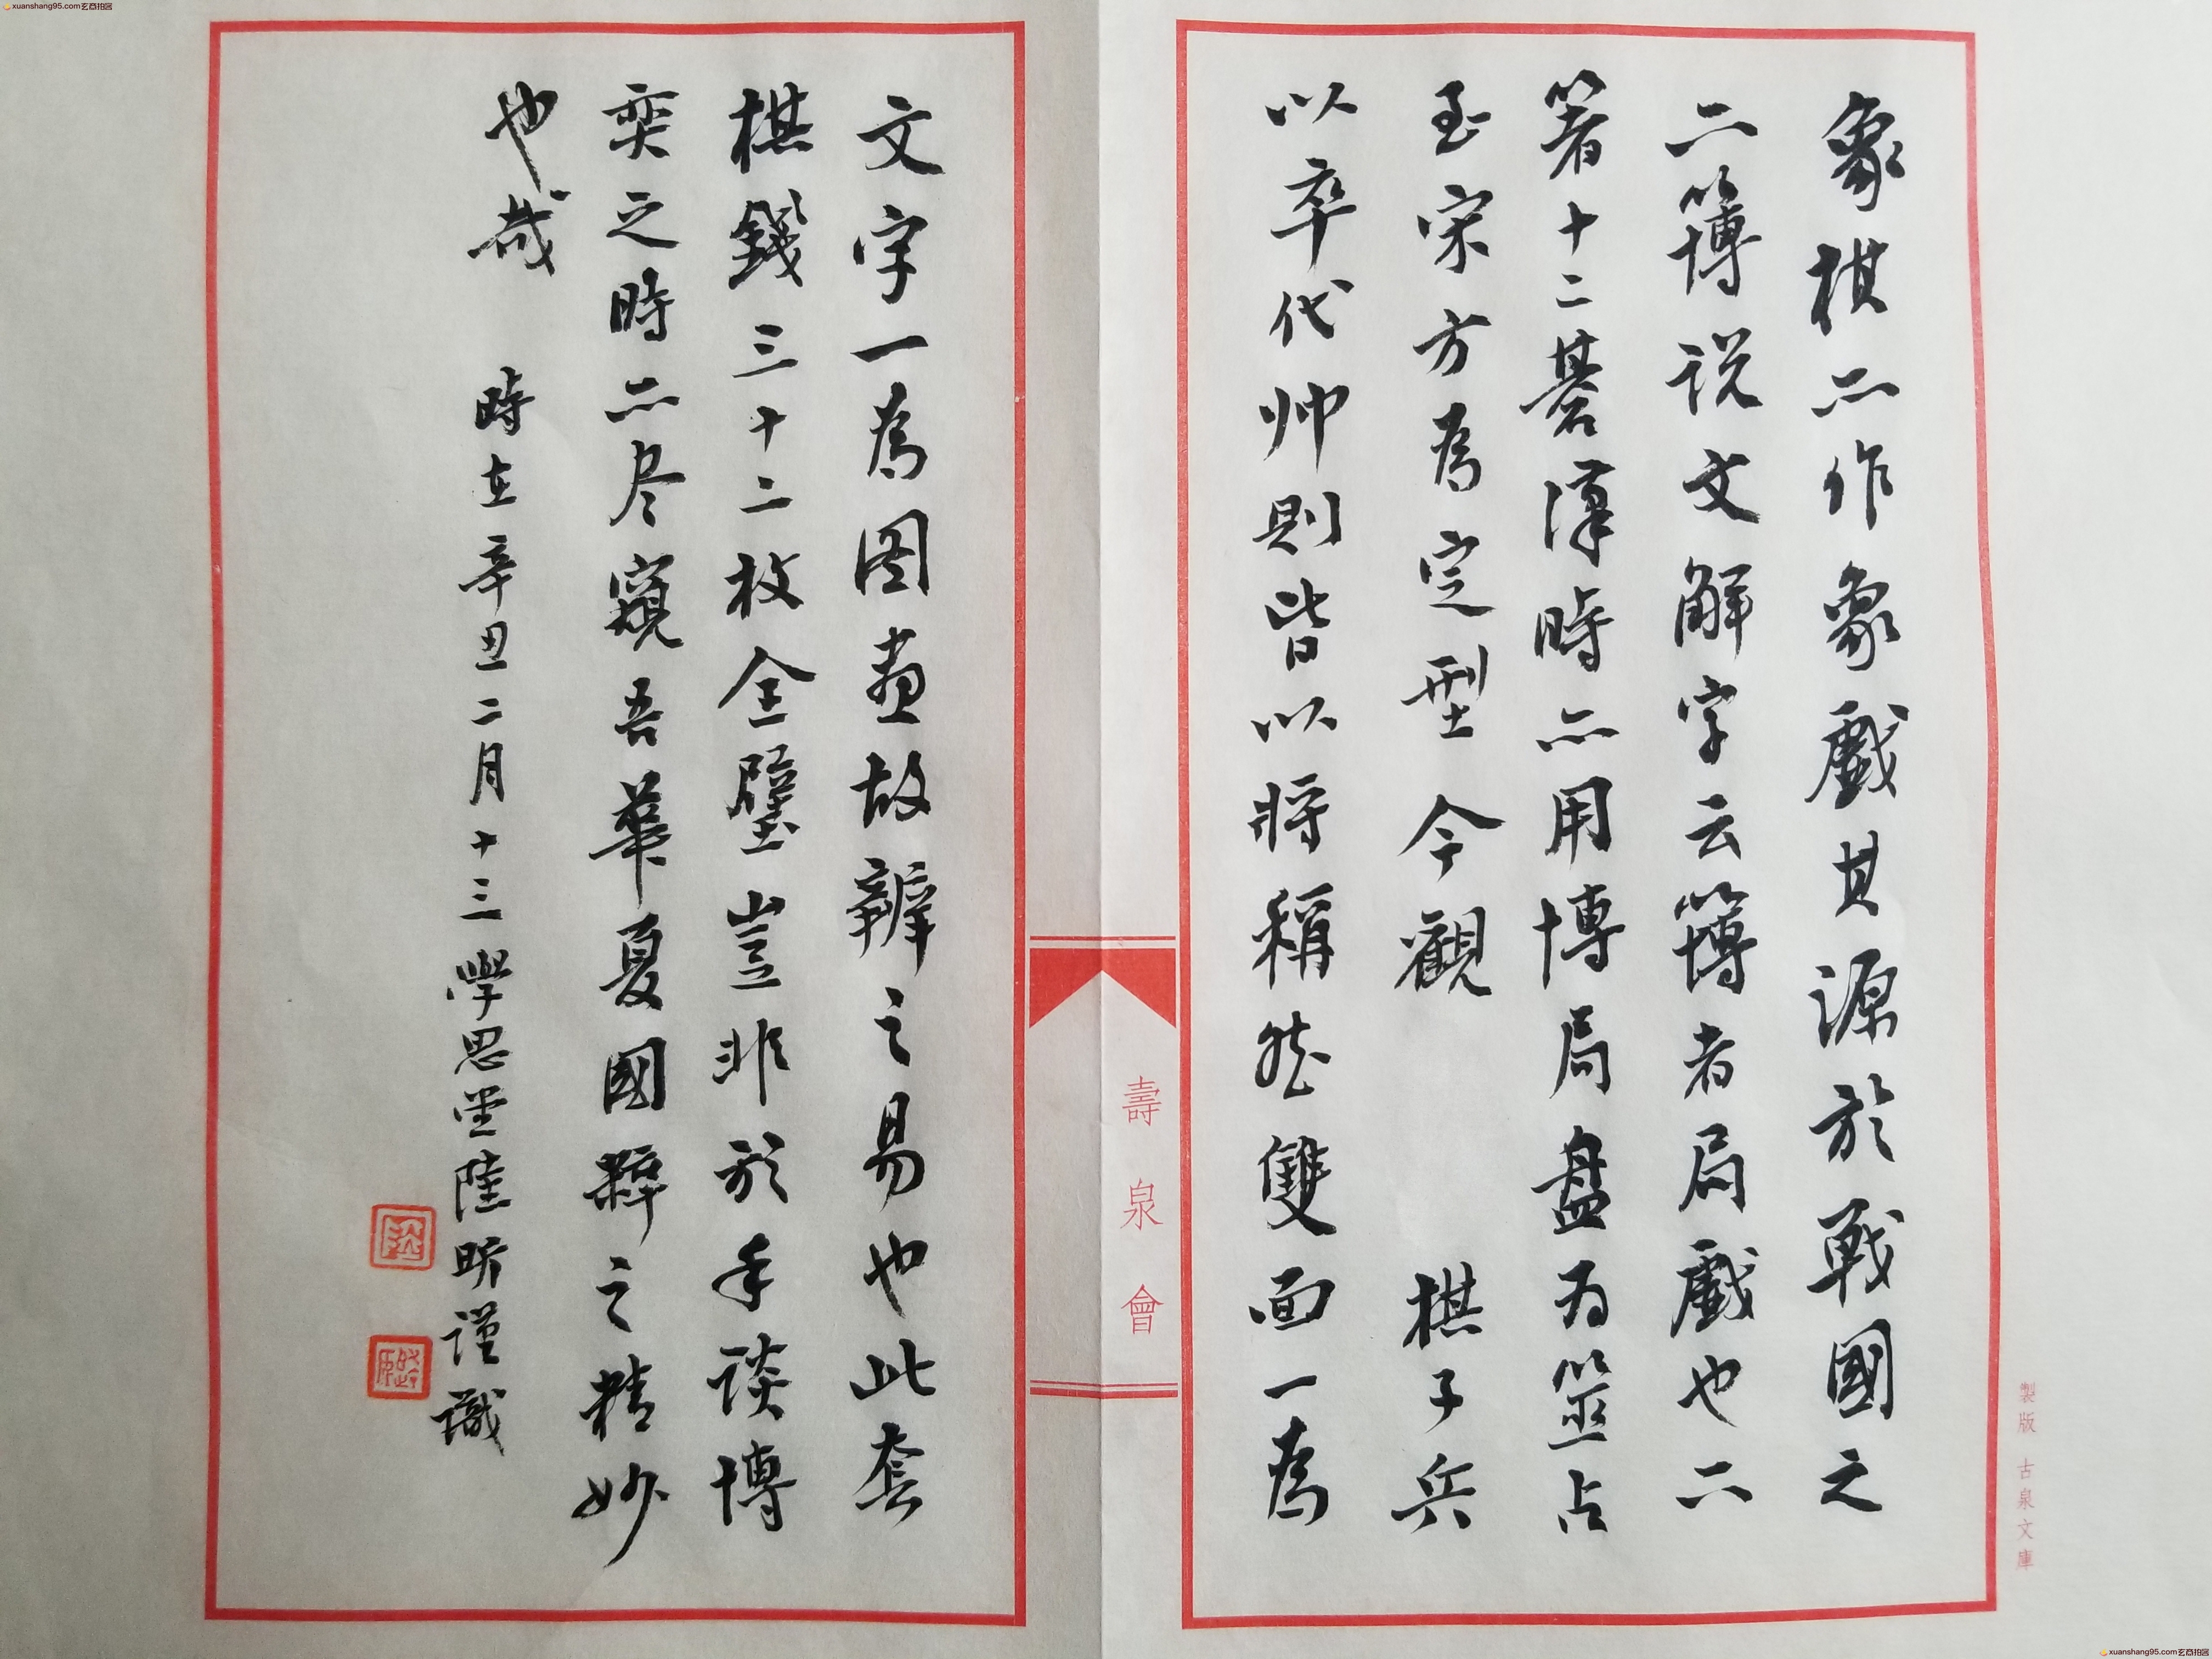 象棋亦作象戲其源於戰國之
六簙说文解字云簙者局戲也六
箸十二棊漢時亦用博局盘为筮占
至宋方為定型今觀 棋子兵
以卒代帅則皆以将稱然雙面一為
文字一為图畫故辨之易也此套
棋錢三十二枚全璧豈非於手談博
奕之時亦尽窺吾華夏國粹之精妙
也哉
時在辛丑二月十三學思堂陸昕谨識
壽泉會
製版 古泉文庫
xuanshang95.com玄商拍客
xuanshang95.com玄商拍客